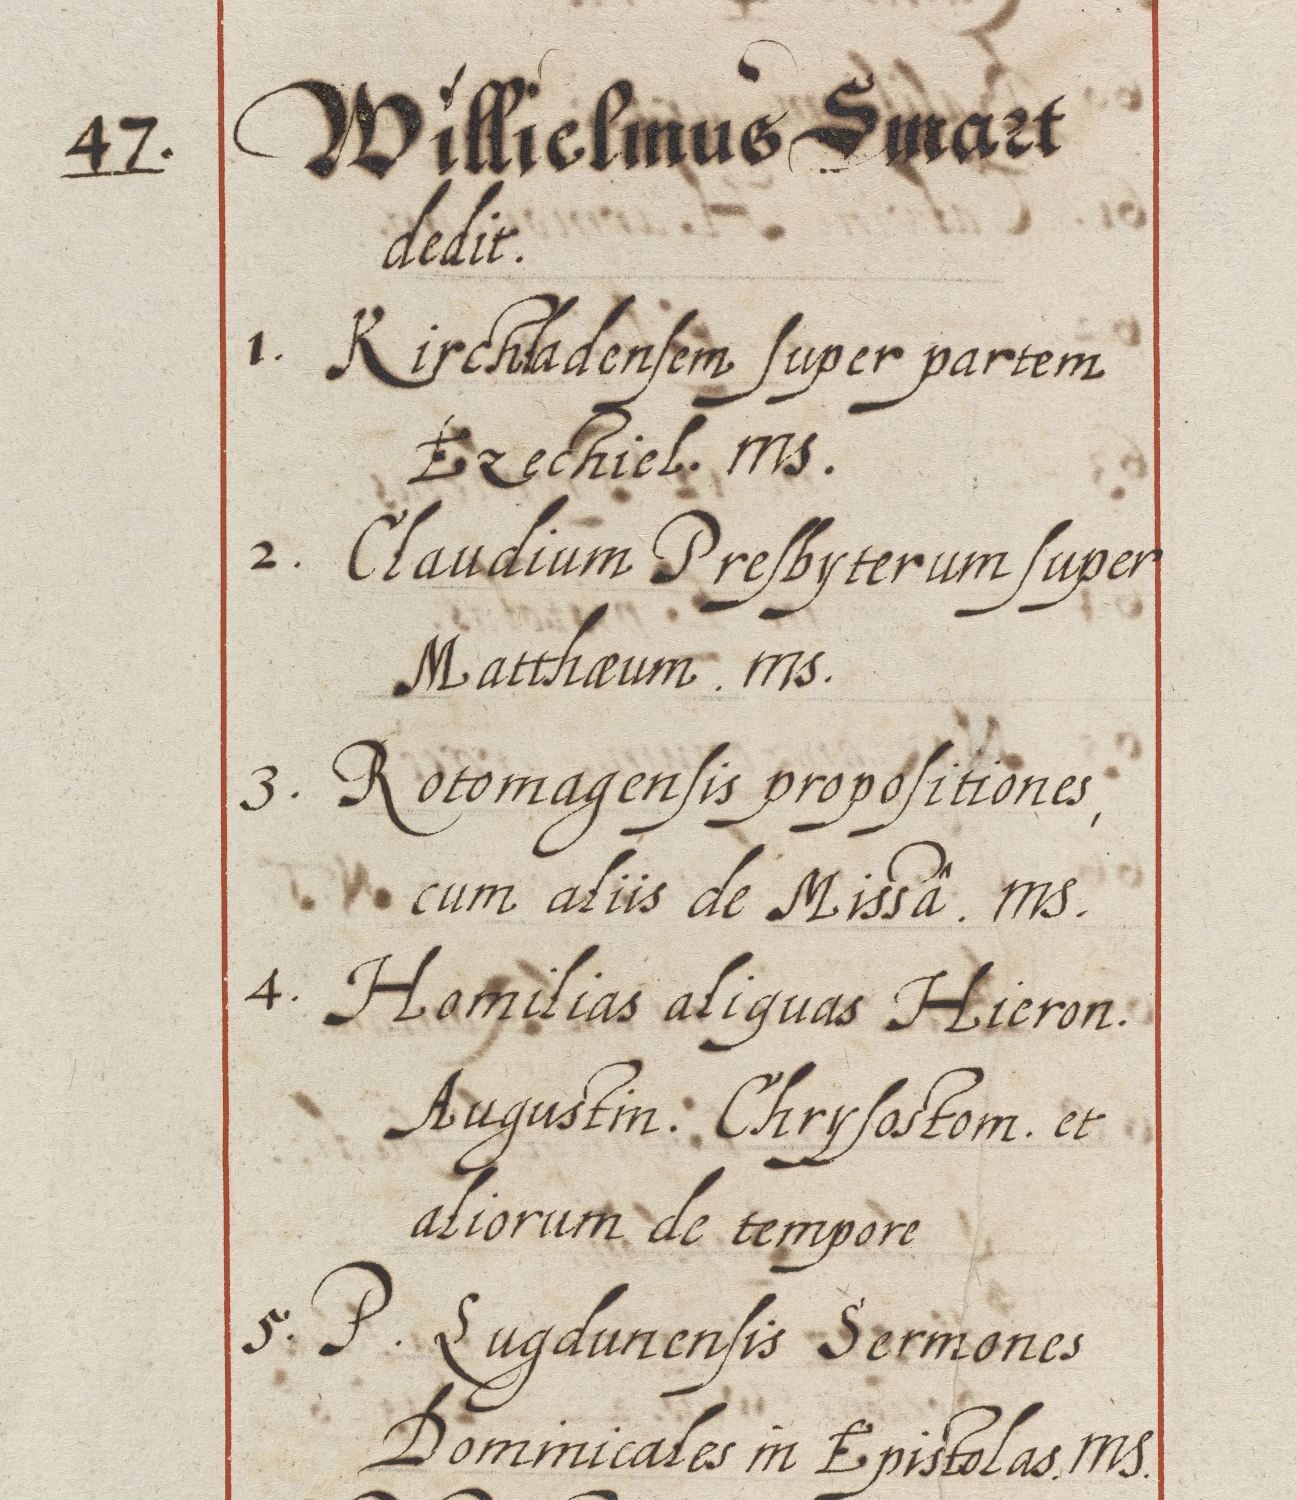 47. Willielmus Smart
dedit.
1. Kirchladenſem ſuper partem
Ezechiel. ms.
2. Claudium Preſbyterum ſuper
Matthæum. ms.
3. Rotomagenſis propoſitiones,
cum aliis de Missâ. ms.
4. Homilias aliquas Hieron.
Augustin. Chryſostom. et
aliorum de tempore
5. P. Lugdunenſis Sermones
Dominicales in Epistolas. ms.